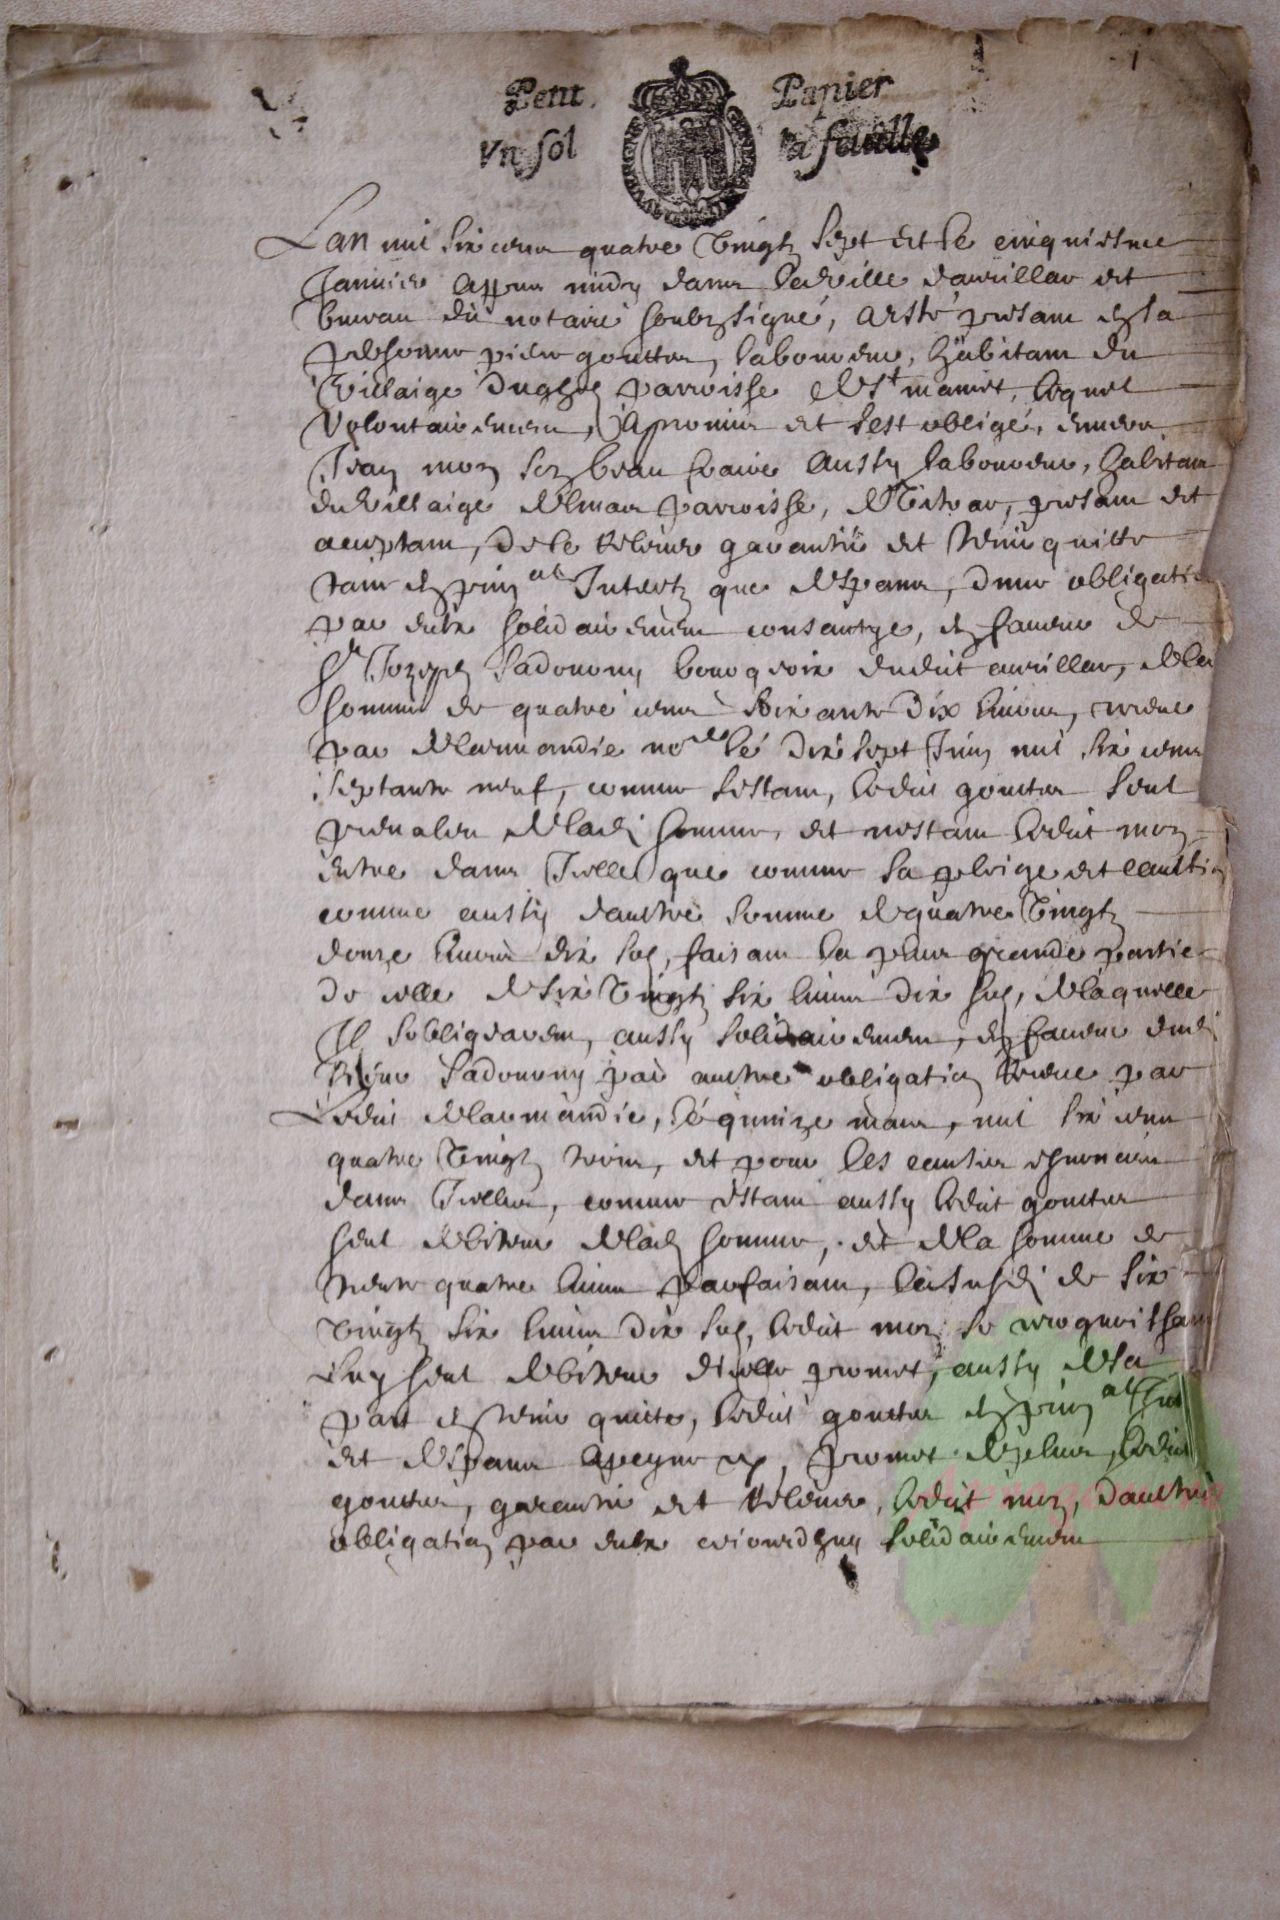 Petit Papier
Vn sol la feuille
Lan mil six cens quatre vingtz sept et le cinquiesme
Janvier appres midy dans la ville daurillac et
bureau du notaire soubzsigné, a esté presant en sa
personne pierre gouttes, laboureur, habitant du
villaige parroisse de St mamet, lequel
volontairement, a promis et sest obligé, envers
Jean son beau fraire aussy laboureur, habitant
du villaige parroisse, presant et
aceptant, de le relever garantir et tenir quitte
tant en prinal Interetz que despans, dune obligation
par eulx solidairement consantye, en faveur de
Sr Jozeph Ladoux bourgeois dudit aurillac, de la
somme de quatre cens soixante dix livres, receue
par Delarmandie nore le dix sept Juin mil six cens
septante neuf, comme estant, ledit gouttes seul
prenaleu de lad somme, et nestant ledit
entre dans Icelle que comme sa pleige et caution
comme aussy dautre somme de quatre vingtz
douze livres dix solz, faisant la plus grande partie
de celle de six vingtz six livres dix solz, de laquelle
Il sobligearent, aussy solidairement, en faveur dud
sieur par autre obligation receue par
Ledit Delarmandie, le quinze mars, mil six cens
quatre vingtz trois, et pour les causes enoncees
dans Icelles, comme estant aussy ledit gouttes
seul debiteur de lad somme, et de la somme de
trente quatre livres parfaisant, la susd de six
vingtz six livres dix solz, ledit se recognoissant
luy seul debiteur dicelle promet, aussy de sa
part en tenir quitte, ledit gouttes en prinal Inst
et despans a peyne promet de plus, ledit
gouttes, garantir et relever, ledit dautre
obligation par eulx cejourdhuy solidairement